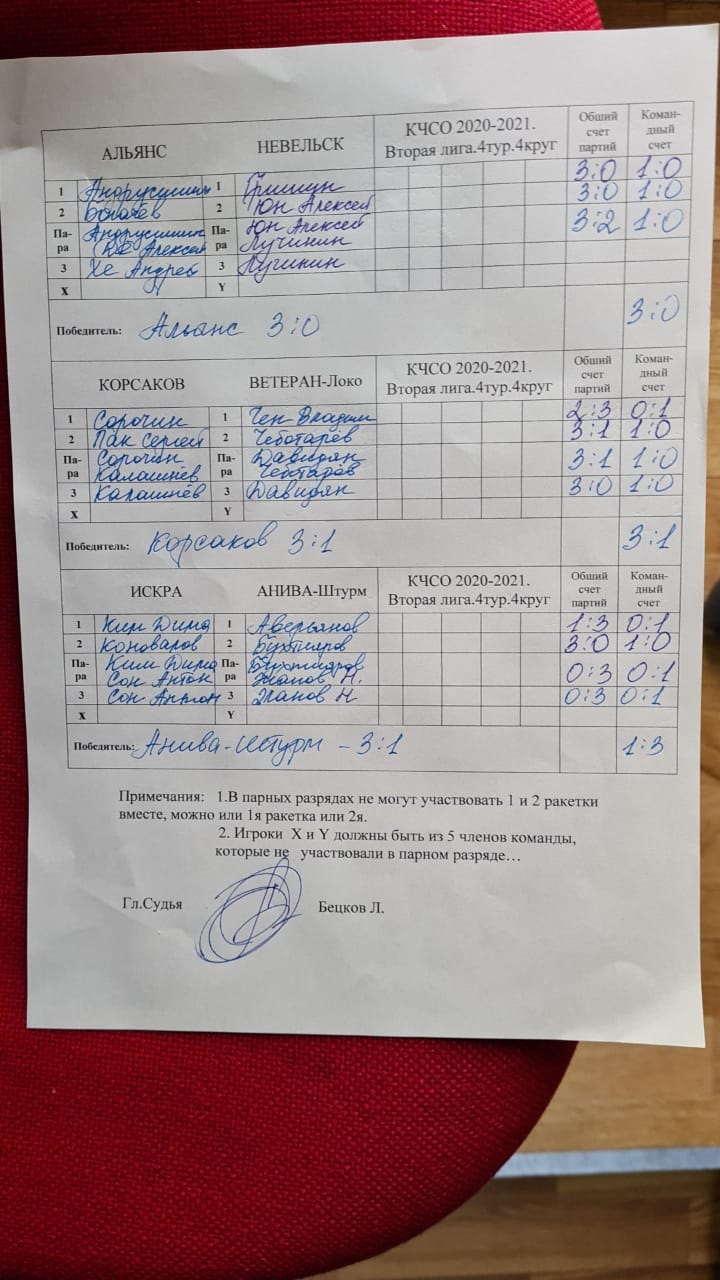 АЛЬЯНС НЕВЕЛЬСК КЧСО 2020-2021. Вторая лига.4тур.4круг Общий счет партий Коман-дный счет
1 Андрусишин 1 Гришун 3:0 1:0
2 Богачёв 2 Юн Алексей 3:0 1:0
Па-ра Андрусишин Па-ра Юн Алексей 3:2 1:0
Алексей Лучинин
3 Хе Андрей 3 Лучинин
X Y
Победитель: Альянс 3:0 3:0
КОРСАКОВ ВЕТЕРАН-Локо КЧСО 2020-2021. Вторая лига.4тур.4круг Общий счет партий Коман-дный счет
1 Сорочин 1 Чен Владим 2:3 0:1
2 Пак Сергей 2 Чеботарёв 3:1 1:0
Па-ра Сорочин Па-ра Давидян 3:1 1:0
Калашнёв Чеботарёв
3 Калашнёв 3 Давидян 3:0 1:0
X Y
Победитель: Корсаков 3:1 3:1
ИСКРА АНИВА-Штурм КЧСО 2020-2021. Вторая лига.4тур.4круг Общий счет партий Коман-дный счет
1 Ким Дима 1 Аверьянов 1:3 0:1
2 Коновалов 2 Бухтияров 3:0 1:0
Па-ра Ким Дима Па-ра Бухтияров 0:3 0:1
Сон Антон Жданов Н.
3 Сон Антон 3 Жданов Н 0:3 0:1
X Y
Победитель: Анива-Штурм – 3:1 1:3
Примечания: 1.В парных разрядах не могут участвовать 1 и 2 ракетки
вместе, можно или 1я ракетка или 2я.
2. Игроки X и Y должны быть из 5 членов команды,
которые не участвовали в парном разряде…
Гл.Судья Бецков Л.